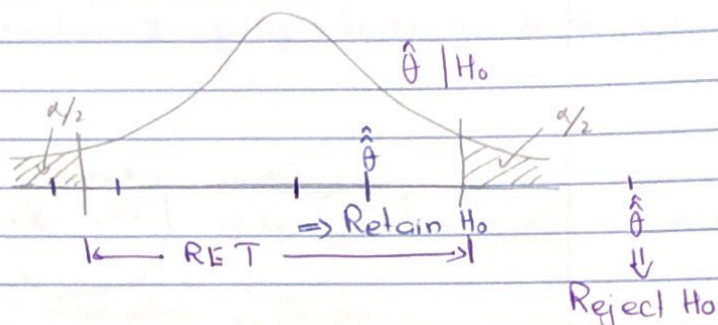 θ̂ | H₀
α/2
α/2
θ̂̂
⇒ Retain H₀
RET
θ̂̂
⇓
Reject H₀